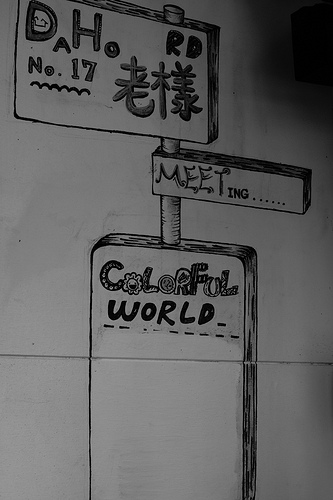 DAHO RD
No. 17
老樣
MEETING......
COLORFUL
WORLD